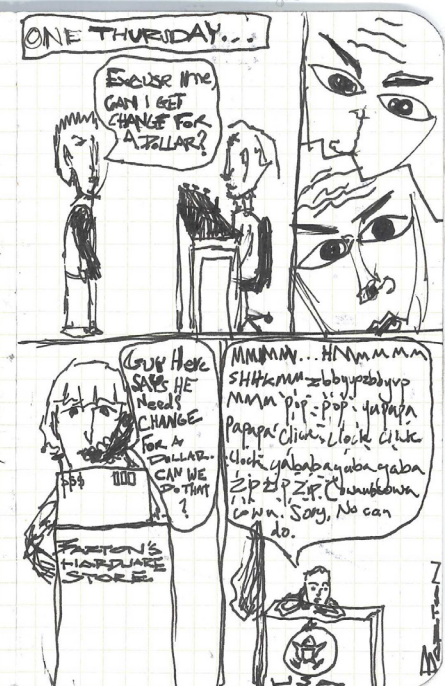 ONE THURSDAY...
EXCUSE ME,
CAN I GET
CHANGE FOR
A DOLLAR?
GUY HERE
SAYS HE
NEEDS
CHANGE
FOR A
DOLLAR.
CAN WE
DO THAT
?
$$$
BARTON'S
HARDWARE
STORE.
MMMMM...HMMMMMM
SHHKMM zbbyypzbbyyp
MMM pip.pop. yapapa
papapa Click. Clock Click
Clock yababayabayaba
Zip Zip Zip.
cowa. Sorry, No can
do.
USA